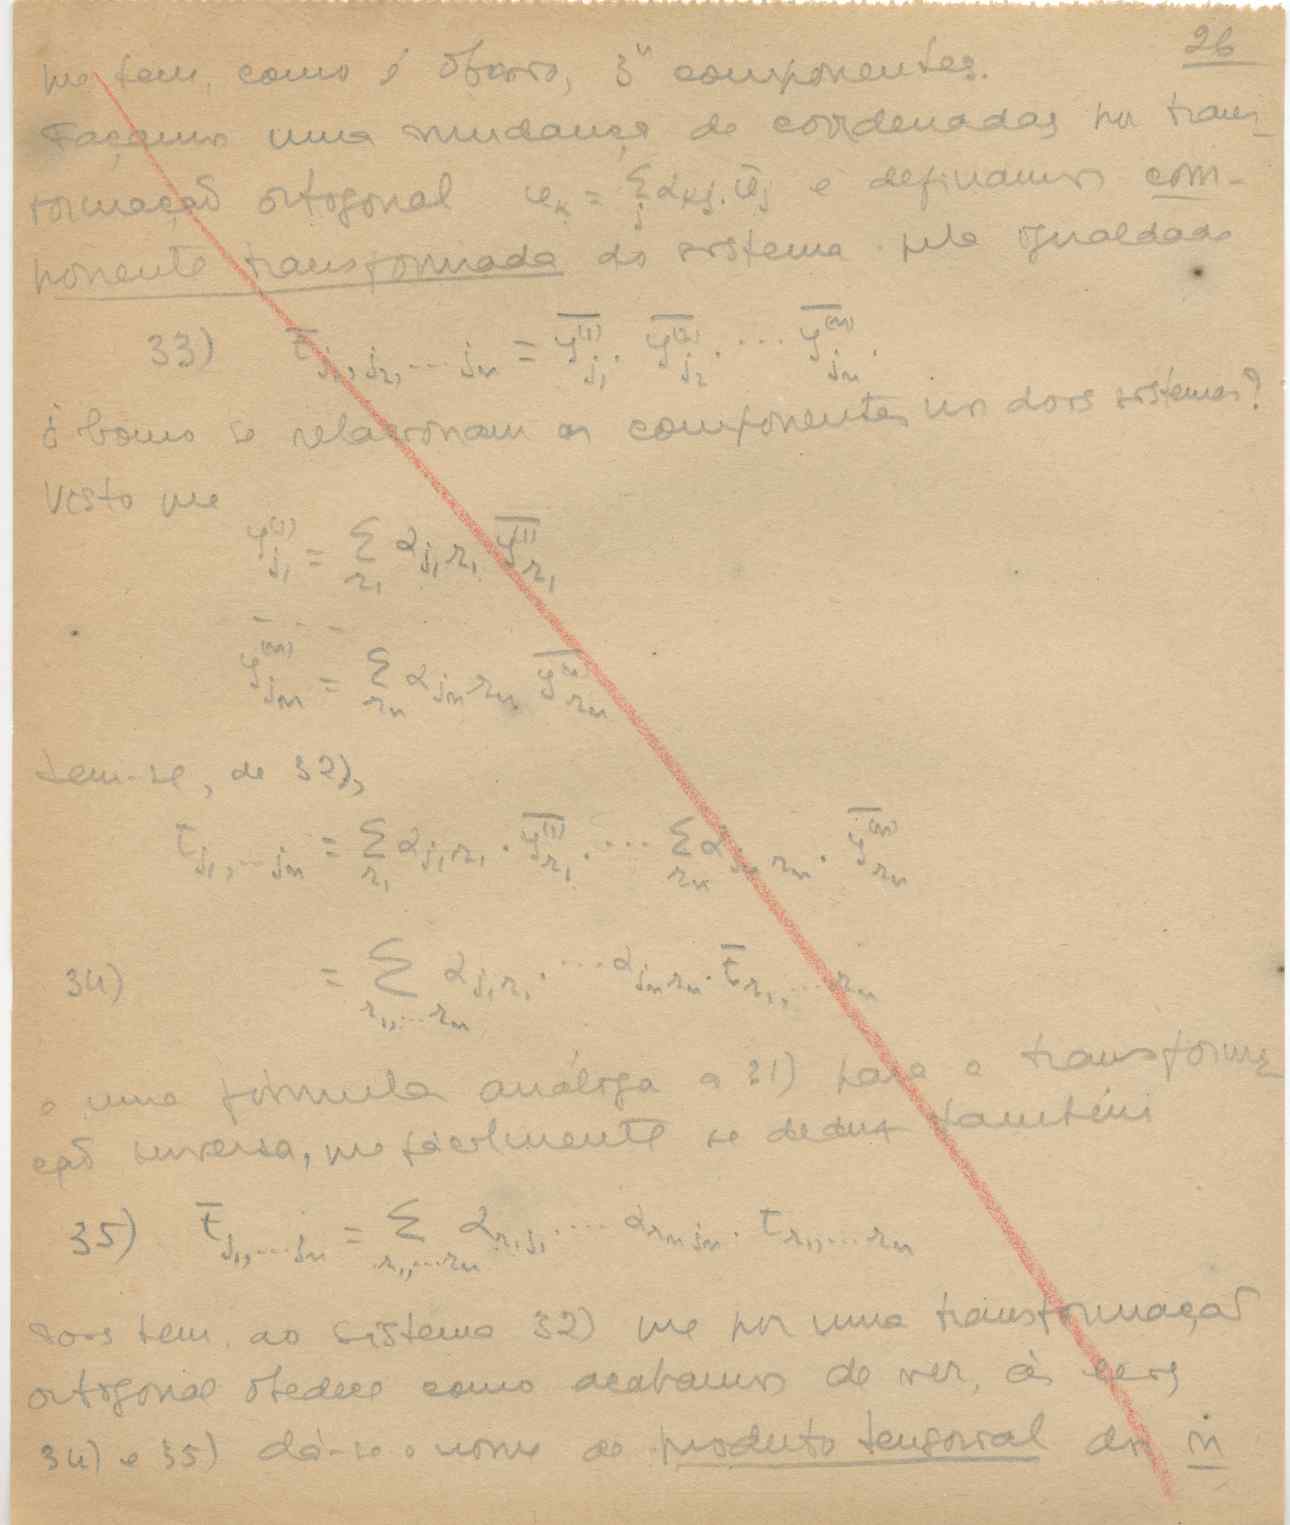 26
que tem, como é óbvio, 3ⁿ componentes.
Façamos uma mudança de coordenadas por trans-
formação ortogonal e_k = Σ_j α_kj . ē_j e definamos com-
ponente transformada do sistema pela igualdade
33) t̄_{j₁,j₂,...jₙ} = \overline{y}^{(1)}_{j₁} . \overline{y}^{(2)}_{j₂} . ... \overline{y}^{(n)}_{jₙ} .
Como se relacionam as componentes nos dois sistemas?
Visto que
y^{(1)}_{j₁} = Σ_{r₁} α_{j₁r₁} \overline{y}^{(1)}_{r₁}
- - - -
y^{(n)}_{jₙ} = Σ_{rₙ} α_{jₙrₙ} \overline{y}^{(n)}_{rₙ}
tem-se, de 32),
t_{j₁,...jₙ} = Σ_{r₁} α_{j₁r₁} . \overline{y}^{(1)}_{r₁} . ... Σ_{rₙ} α_{jₙrₙ} . \overline{y}^{(n)}_{rₙ}
34) = Σ_{r₁,...rₙ} α_{j₁r₁} . ... α_{jₙrₙ} . t̄_{r₁,...rₙ}
e uma fórmula análoga a 31) para a transforma-
ção inversa, que facilmente se deduz também
35) t̄_{j₁,...jₙ} = Σ_{r₁,...rₙ} α_{r₁j₁} . ... α_{rₙjₙ} . t_{r₁,...rₙ}
Pois bem, ao sistema 32) que por uma transformação
ortogonal obedece como acabamos de ver, às leis
34) e 35) dá-se o nome de produto tensorial dos n